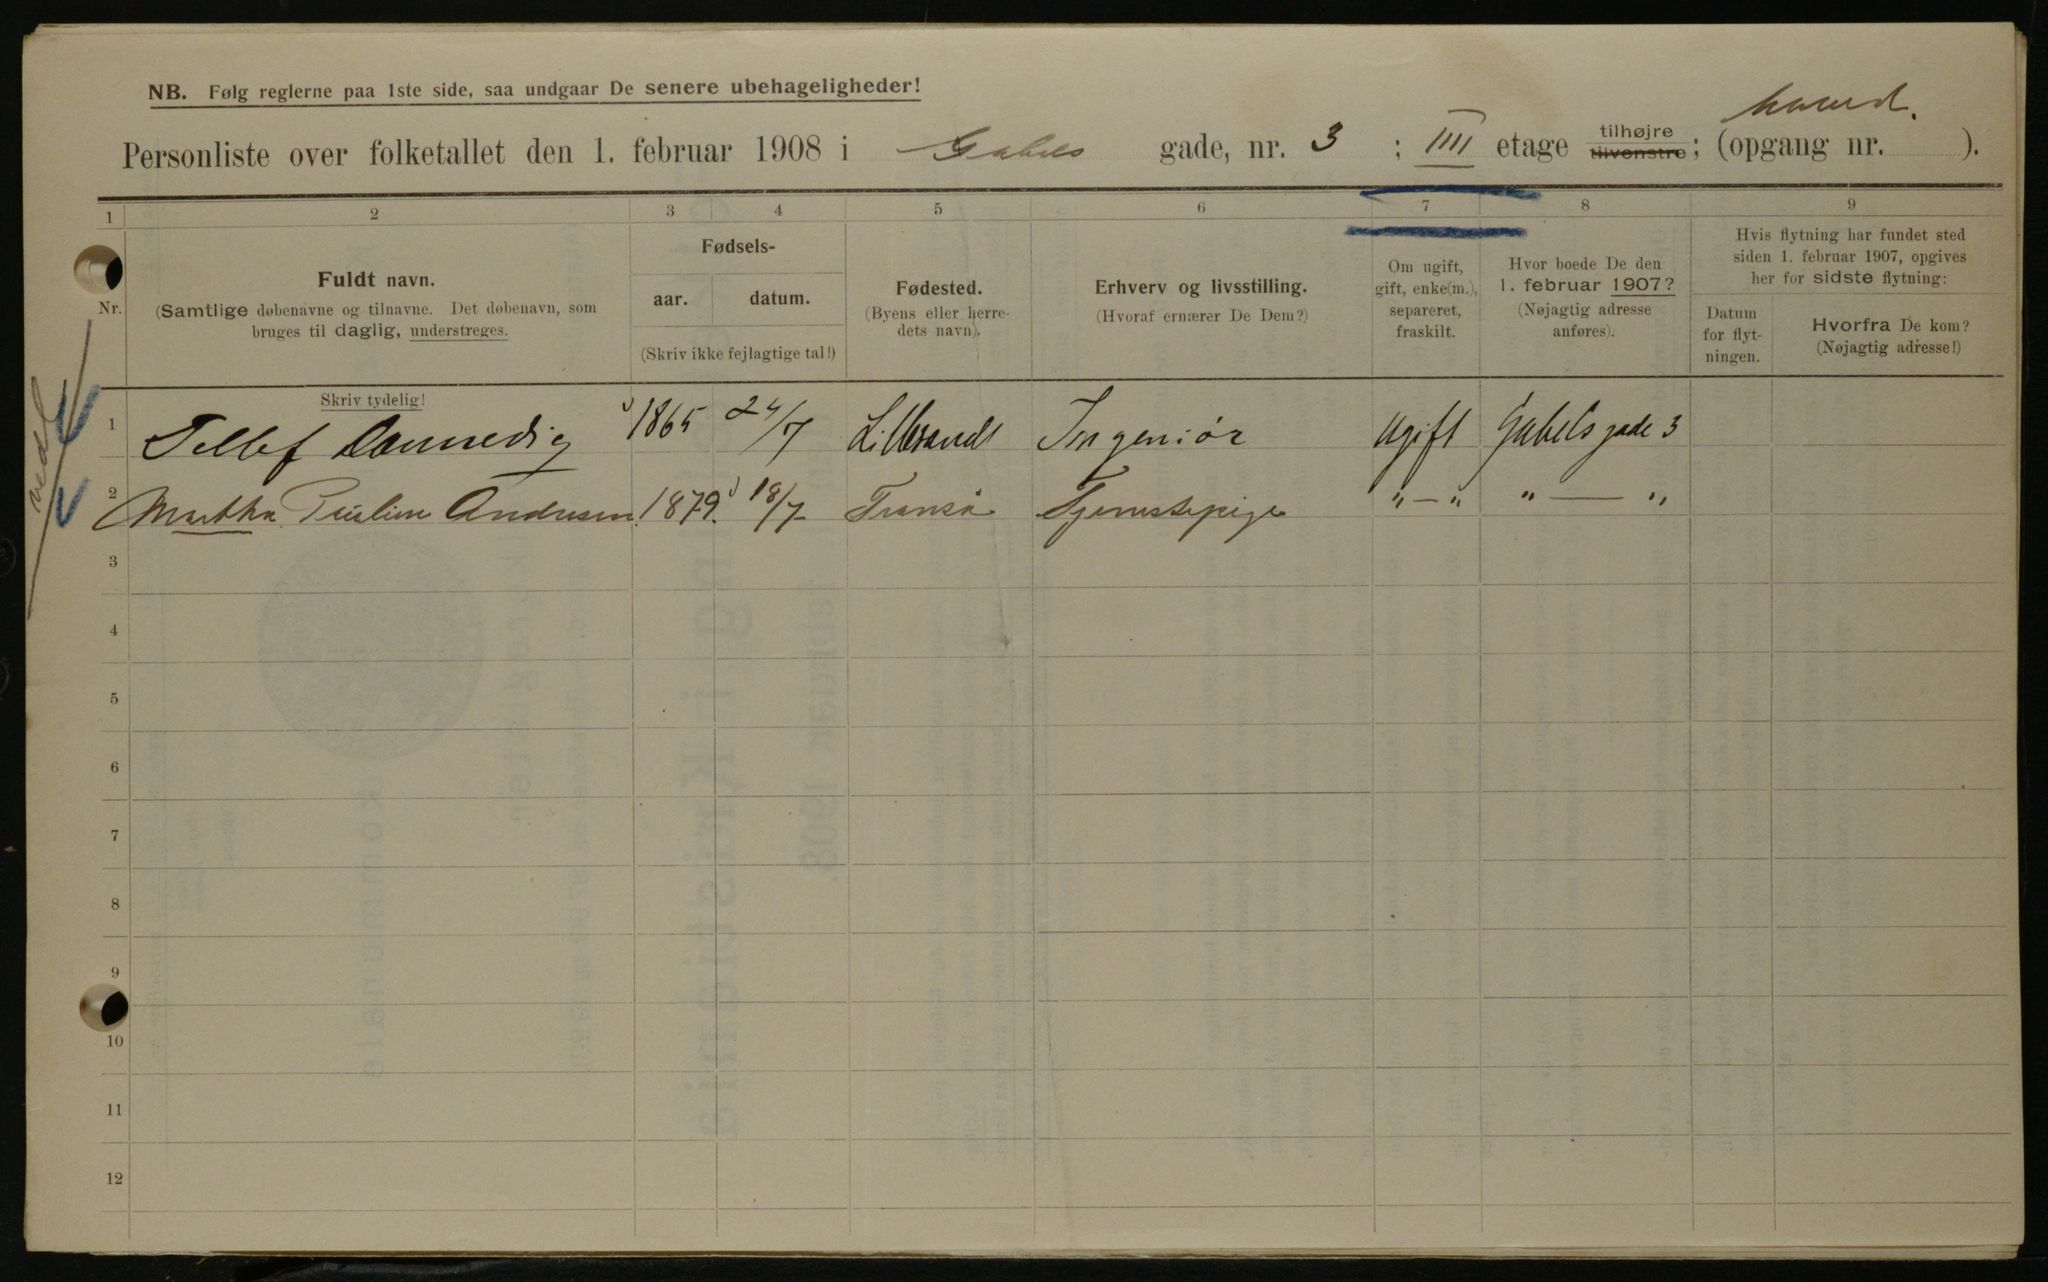 NB. Følg reglerne paa 1ste side, saa undgaar De senere ubehageligheder!
Personliste over folketallet den 1. februar 1908 i Gabels gade, nr. 3 ; IIII etage tilhøjre tilvenstre; (opgang nr. ).
1 2 3 4 5 6 7 8 9
Nr.
Fuldt navn.
(Samtlige døbenavne og tilnavne. Det døbenavn, som
bruges til daglig, understreges.
Fødsels-
aar. datum.
(Skriv ikke fejlagtige tal!)
Fødested.
(Byens eller herre-
dets navn).
Erhverv og livsstilling.
(Hvoraf ernærer De Dem?)
Om ugift,
gift, enke(m.),
separeret,
fraskilt.
Hvor boede De den
1. februar 1907?
(Nøjagtig adresse
anføres).
Hvis flytning har fundet sted
siden 1. februar 1907, opgives
her for sidste flytning:
Datum
for flyt-
ningen.
Hvorfra De kom?
(Nøjagtig adresse!)
Skriv tydelig!
1 Tellef 1865 24/7 Lillesand Ingeniør Ugift Gabels gade 3
2 Martha Pauline Andresen 1879 18/7 Tromsø Tjenestepige „ — „ „ — „
3
4
5
6
7
8
9
10
11
12